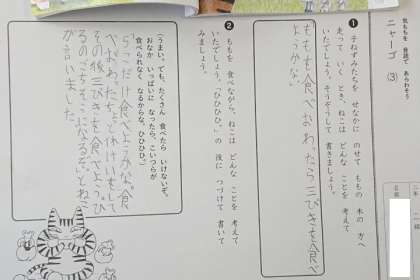 気もちを 音読で あらわそう
ニャーゴ (3)
❶ 子ねずみたちを せなかに のせて ももの 木の 方へ
走って いく とき、ねこは どんな ことを 考えて
いたでしょう。そうぞうして 書きましょう。
ももを食べおわったら三びきを食べ
ようかな。
❷ ももを 食べながら、ねこは どんな ことを 考えて
いたでしょう。「ひひひひ。」の 後に つづけて 書いて
みましょう。
(うまい。でも、たくさん 食べたら いけないぞ。
おなか いっぱいに なったら、こいつらが
食べられなく なるからな。ひひひひ。)
らこだけ食べようかな。食
べおわたらちょと休けいをして
その後三びきを食べよう。ひ
るのごちそうになるぞ。とねこ
が言いました。
二年 二組
名前